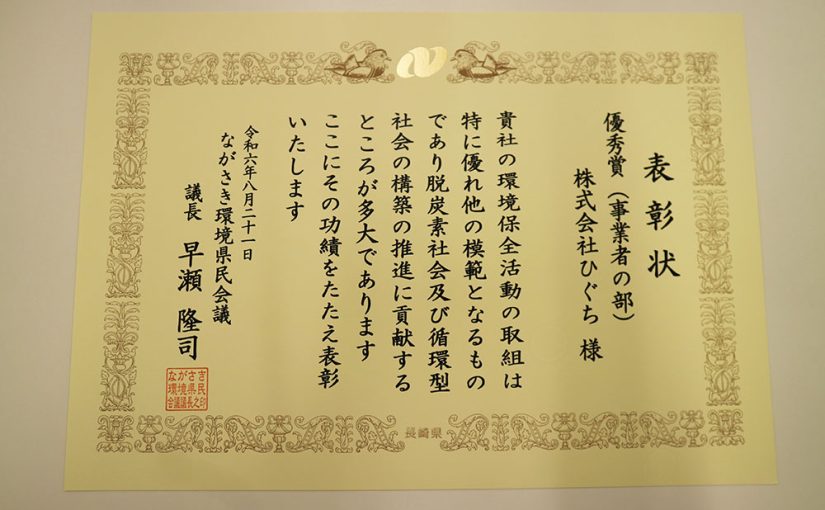 表彰状
優秀賞（事業者の部）
株式会社ひぐち 様
貴社の環境保全活動の取組は
特に優れ他の模範となるもの
であり脱炭素社会及び循環型
社会の構築の推進に貢献する
ところが多大であります
ここにその功績をたたえ表彰
いたします
令和六年八月二十一日
ながさき環境県民会議
議長 早瀬 隆司
ながさき
環境県民
会議議長之印
長崎県